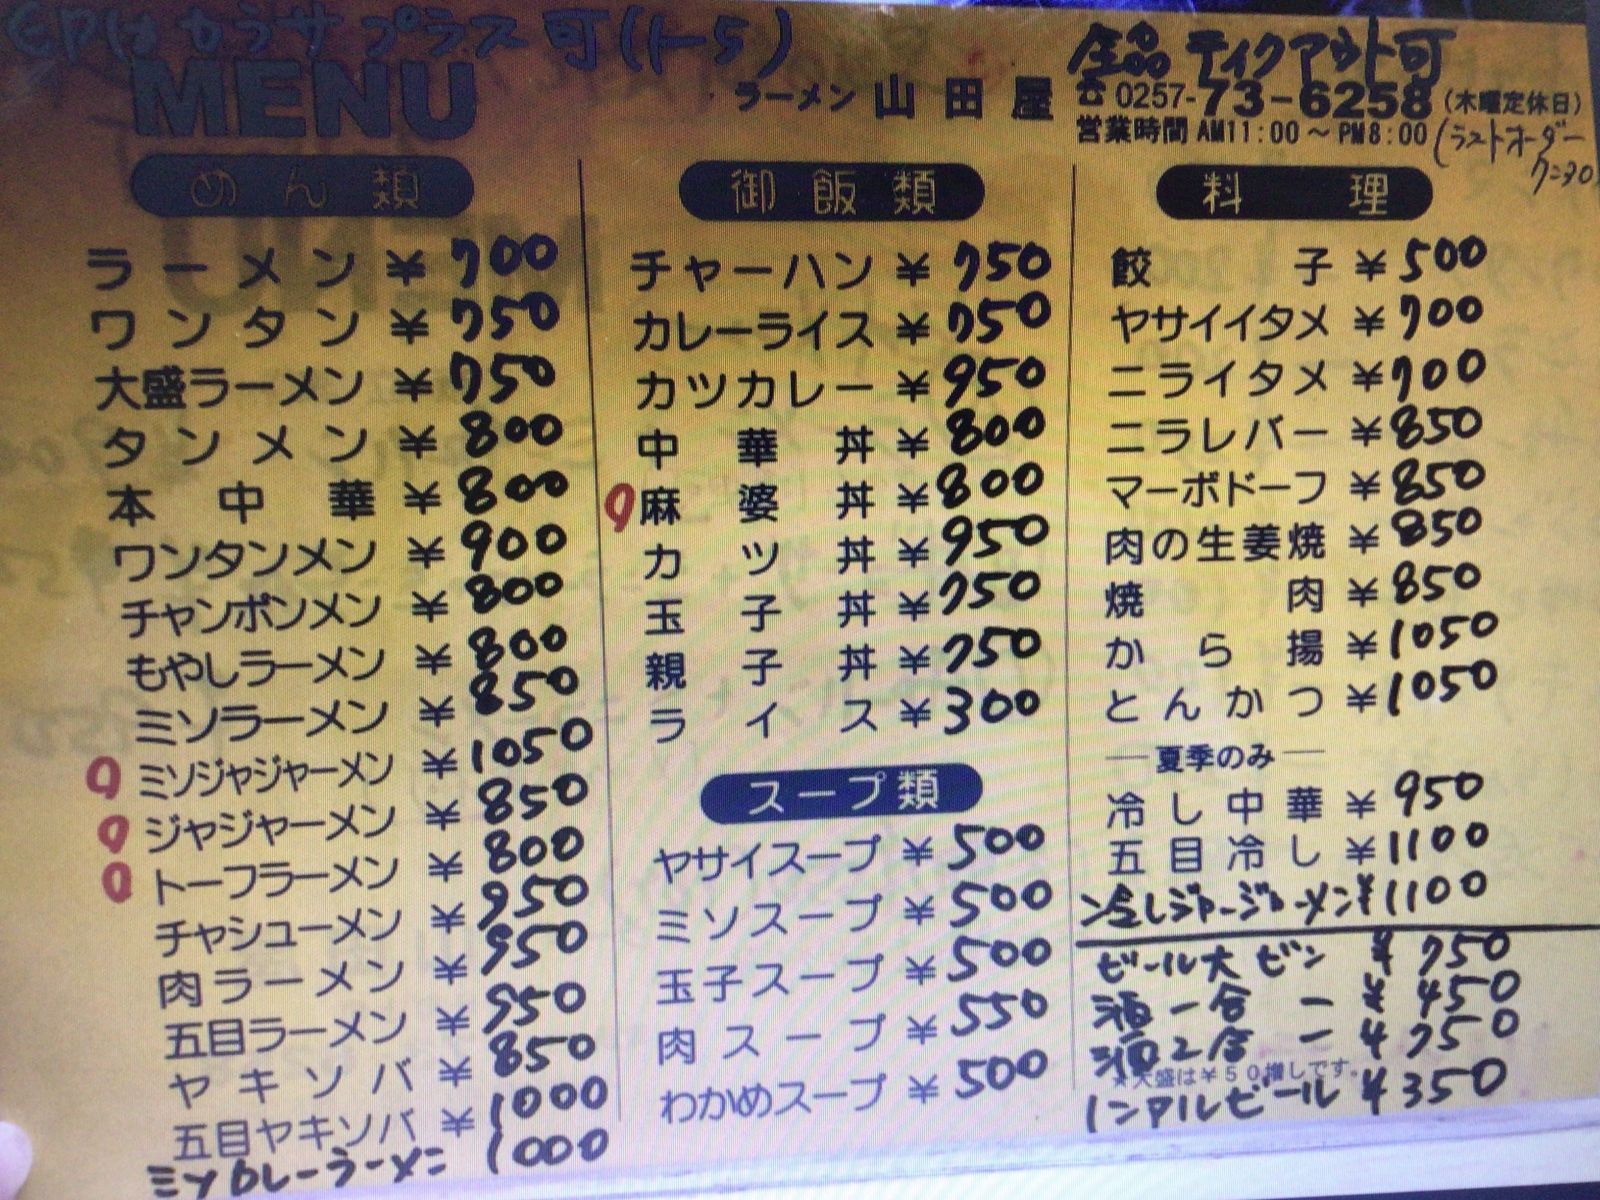 印はカラサプラス可(1〜5)
全品ティクアウト可
MENU
ラーメン 山田屋
☎0257-73-6258 (木曜定休日)
営業時間 AM11:00〜PM8:00 (ラストオーダー
7:30)
めん類
ラーメン ¥700
ワンタン ¥750
大盛ラーメン ¥750
タンメン ¥800
本中華 ¥800
ワンタンメン ¥900
チャンポンメン ¥800
もやしラーメン ¥800
ミソラーメン ¥850
ミソジャジャーメン ¥1050
ジャジャーメン ¥850
トーフラーメン ¥800
チャシューメン ¥950
肉ラーメン ¥950
五目ラーメン ¥950
ヤキソバ ¥850
五目ヤキソバ ¥1000
ミソカレーラーメン 1000
御飯類
チャーハン ¥750
カレーライス ¥750
カツカレー ¥950
中華丼 ¥800
麻婆丼 ¥800
カツ丼 ¥950
玉子丼 ¥750
親子丼 ¥750
ライス ¥300
スープ類
ヤサイスープ ¥500
ミソスープ ¥500
玉子スープ ¥500
肉スープ ¥550
わかめスープ ¥500
料理
餃子 ¥500
ヤサイイタメ ¥700
ニライタメ ¥700
ニラレバー ¥850
マーボドーフ ¥850
肉の生姜焼 ¥850
焼肉 ¥850
から揚 ¥1050
とんかつ ¥1050
夏季のみ
冷し中華 ¥950
五目冷し ¥1100
冷しジャージャーメン ¥1100
ビール大ビン ¥750
酒一合 ー ¥450
酒2合 ー ¥750
★大盛は¥50増しです。
ノンアルビール ¥350